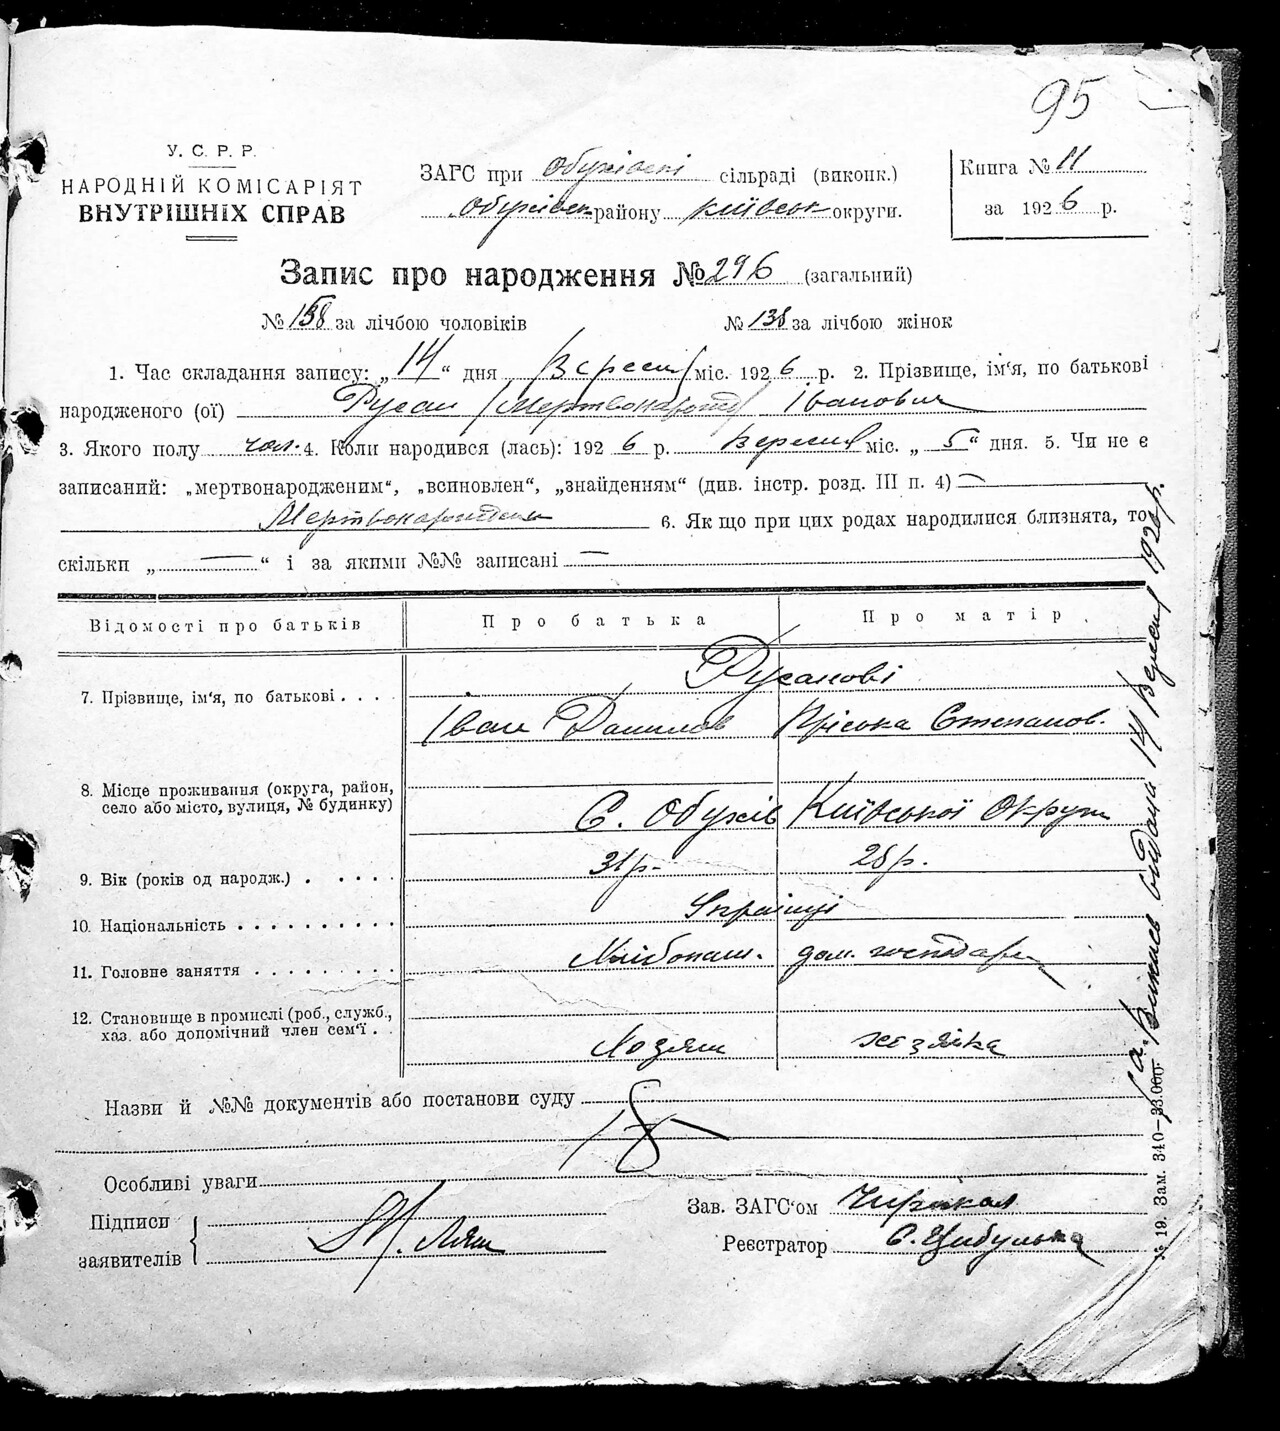 95
У. С. Р. Р.
НАРОДНІЙ КОМІСАРІЯТ
ВНУТРІШНІХ СПРАВ
ЗАГС при Обухівські сільраді (виконк.)
Обухівськ району Київськ округи.
Книга № 11
за 1926 р.
Запис про народження № 296 (загальний)
№ 158 за лічбою чоловіків № 138 за лічбою жінок
1. Час складання запису: „14“ дня Вересня міс. 1926 р. 2. Прізвище, ім‘я, по батькові
народженого (ої) Русан (Мертвонарожд) Іванович
3. Якого полу чол. 4. Коли народився (лась): 1926 р. Вересня міс. „5“ дня. 5. Чи не є
записаний: „мертвонародженим“, „всиновлен“, „знайденням“ (див. інстр. розд. III п. 4) —
6. Як що при цих родах народилися близнята, то
скільки „ — “ і за якими №№ записані —
Відомості про батьків Про батька Про матір
Русанові
7. Прізвище, ім‘я, по батькові . . . .
Іван Данилов Пріська Степанов.
8. Місце проживання (округа, район,
село або місто, вулиця, № будинку)
С. Обухів Київської Округи
9. Вік (років од народж.) . . . . . 31 р. 28 р.
10. Національність . . . . . . . . . . Українці
11. Головне заняття . . . . . . . . . Хлібопаш. дом. господарк
12. Становище в промислі (роб., служб.,
хаз. або допомічний член сем‘ї . .
Хозяин хозяйка
Назви й №№ документів або постанови суду
Особливі уваги
Підписи
заявителів
Зав. ЗАГС‘ом
Реєстратор С. Цибулька
Випись видана 14 Вересня 1926 р.
№ 19. Зам. 340—33.000.